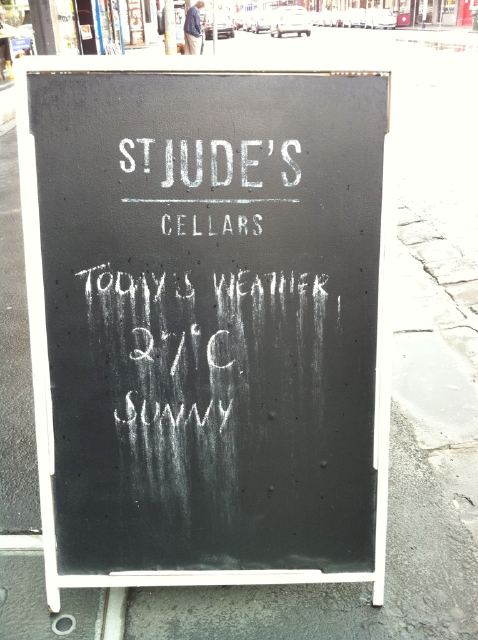 ST JUDE'S
CELLARS
TODAY'S WEATHER,
27°C
SUNNY